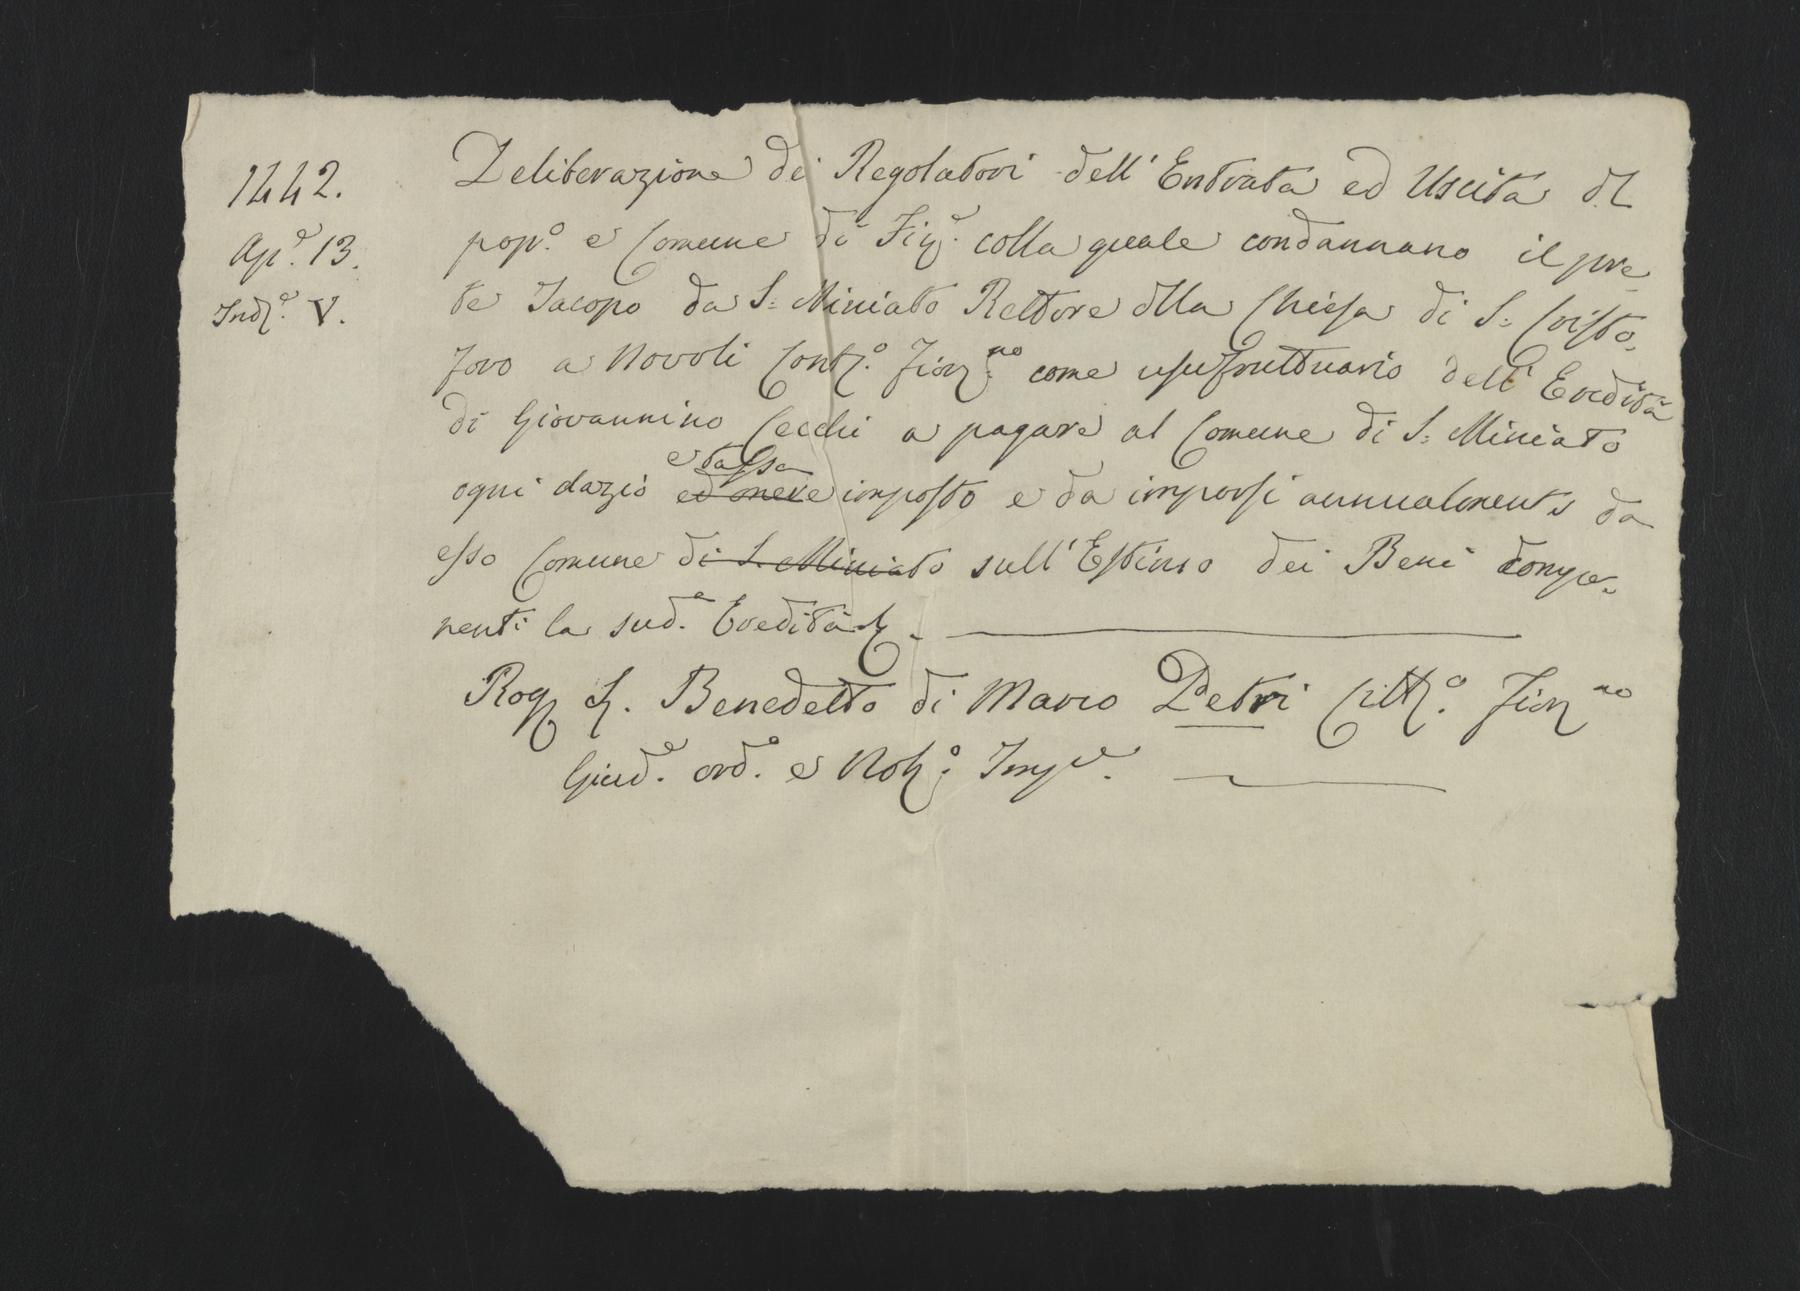 1442.
Ap.e 13.
Indz.e V.
Deliberazione dei Regolatori dell'Entrata ed Uscita dl
pop.o e Comune di Fir.e colla quale condannano il pre
te Jacopo da S: Miniato Rettore dlla Chiesa di S: Cristo-
foro a Novoli Cont.o Fior.no come usufruttuario dell'Eredità
di Giovannino Cecchi a pagare al Comune di S: Miniato
e tassa
ogni dazio ed onere imposto e da imporsi annualmente da
esso Comune di S. Miniato sull'Estimo dei Beni compo-
nenti la sud.a Eredità &. -
Rog. S. Benedetto di Marco Petri Citt.o Fior.no
Giud.e ord.o e Not.o Imp.e.